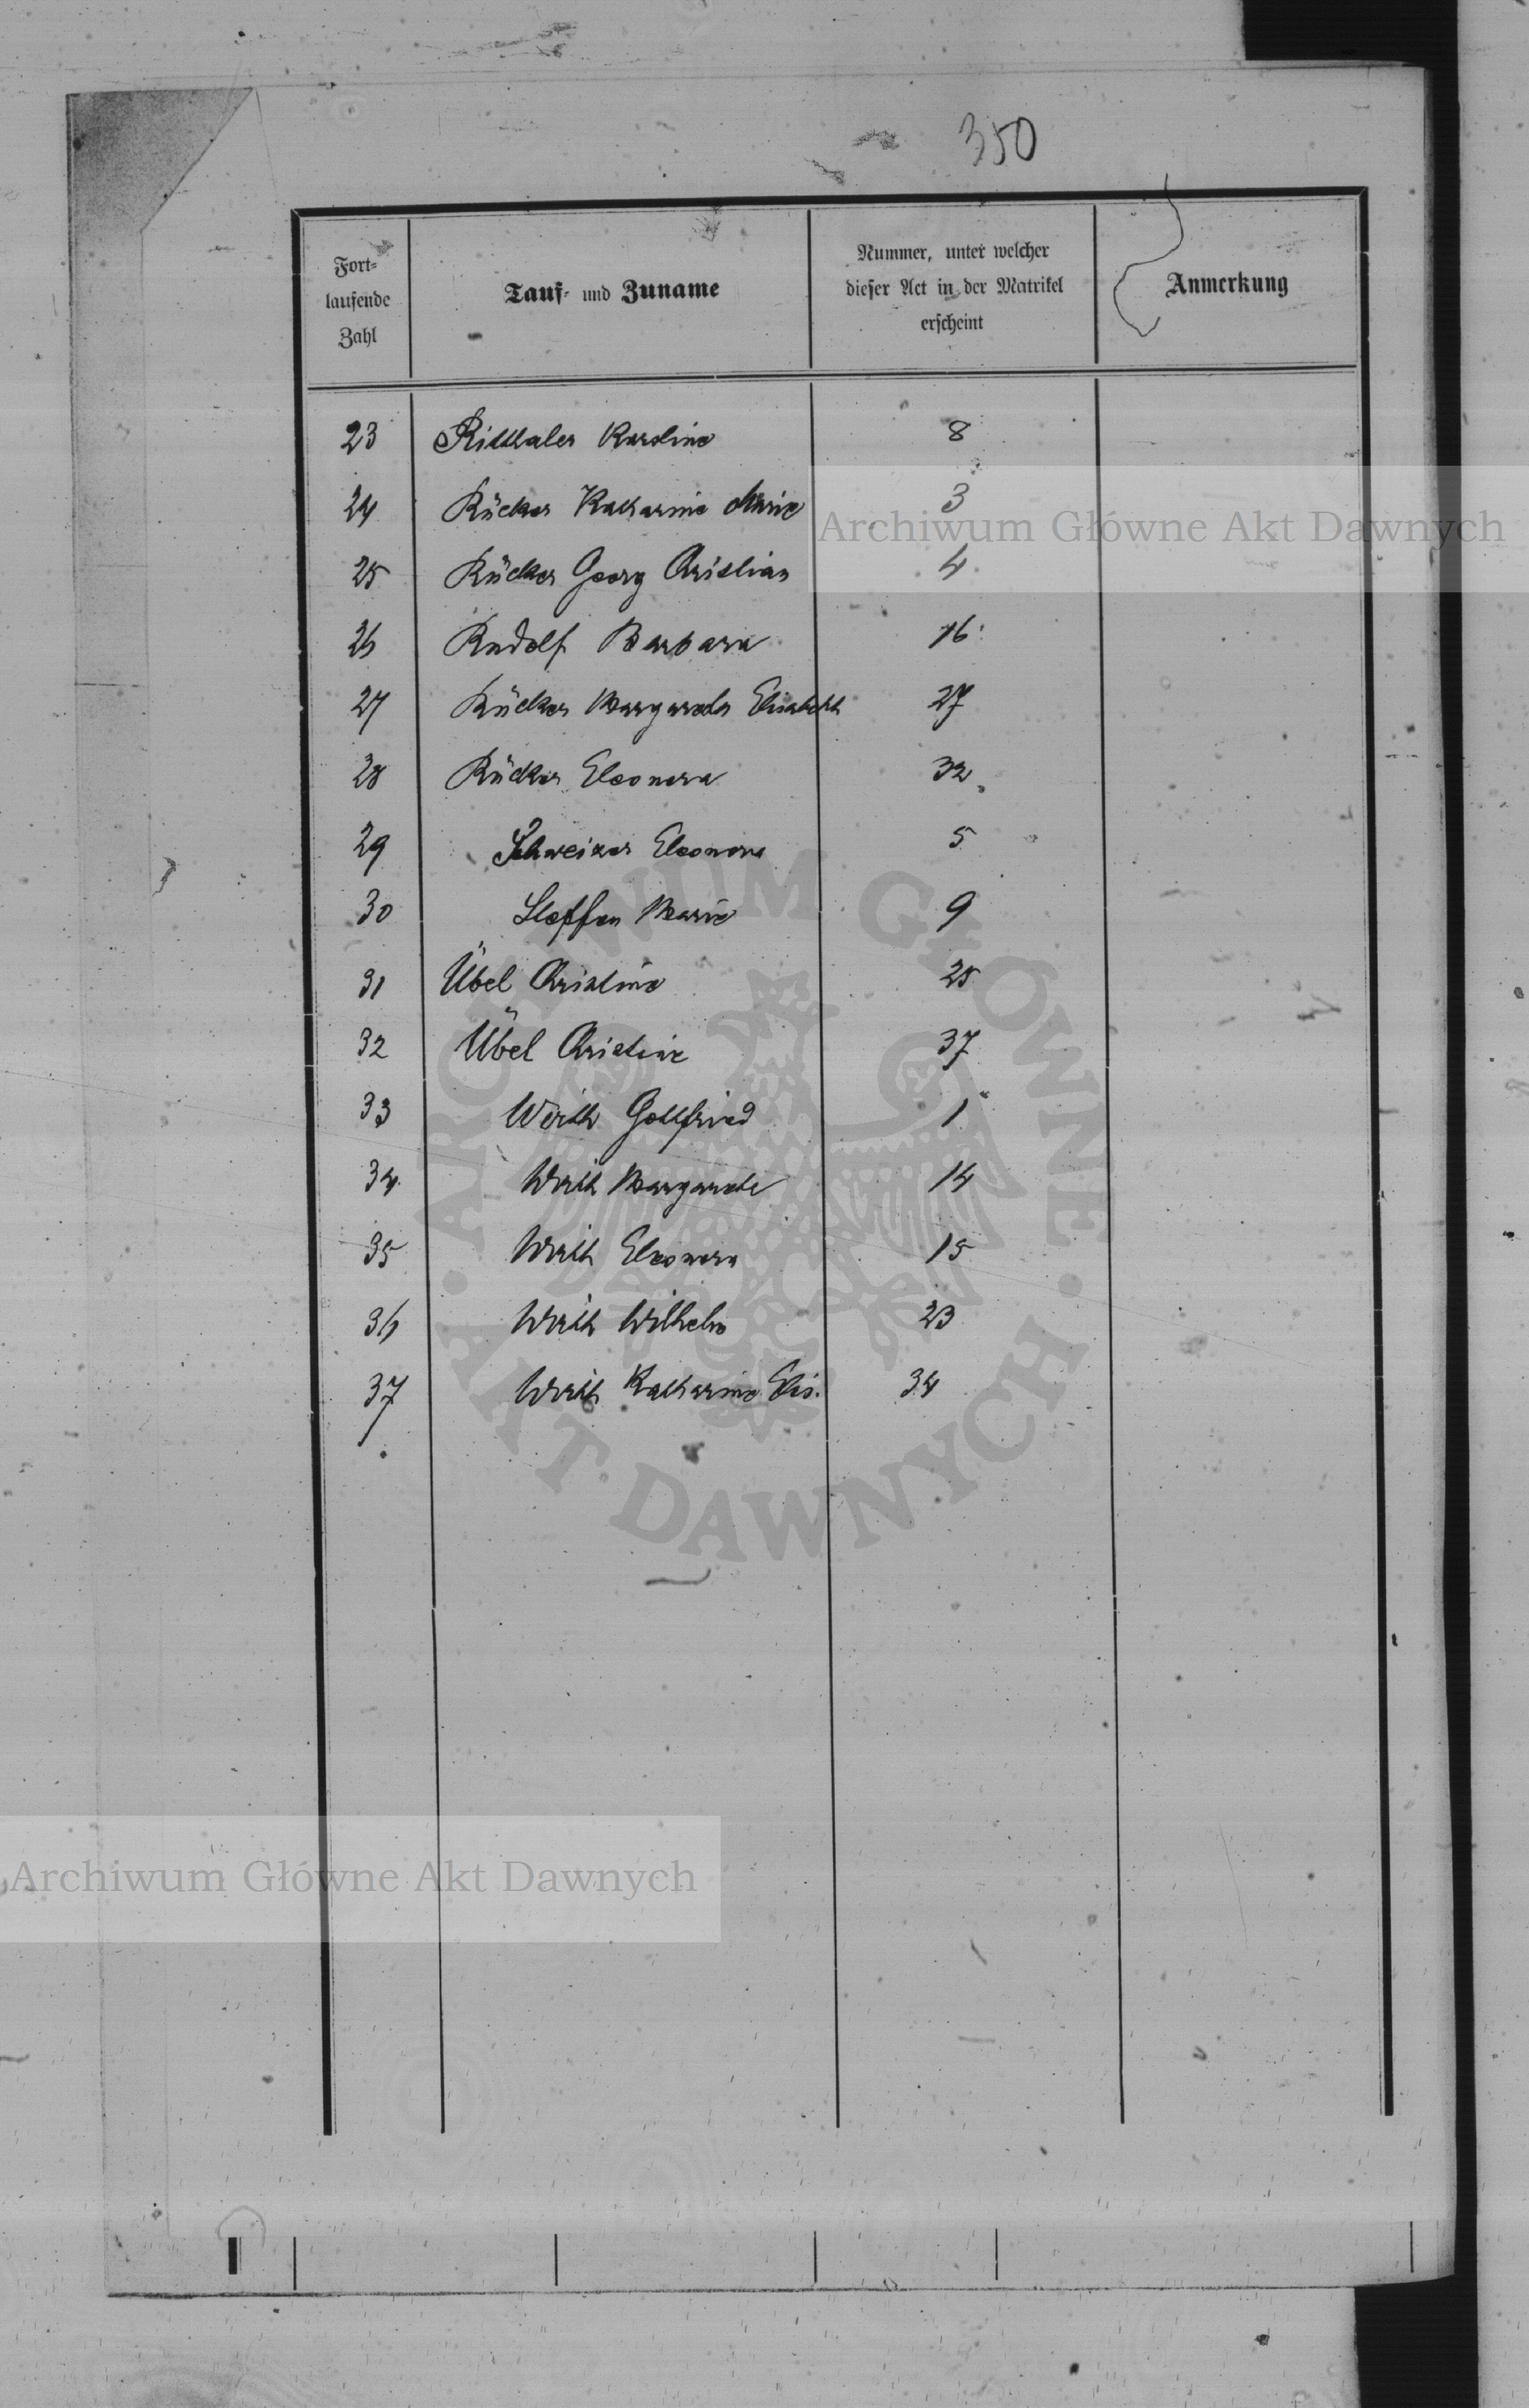 350
Fort-
laufende
Zahl
Tauf- und Zuname
Nummer, unter welcher
dieser Act in der Matrikel
erscheint
Anmerkung
23 Ritthaler Karoline 8
24 Rücker Katharine Marie 3
25 Rücker Georg Christian 4
26 Rudolf Barbara 16
27 Rücker Margareta Elisabeth 27
28 Rücker Eleonora 32
29 Schweizer Eleonora 5
30 Steffen Marie 9
31 Übel Christine 25
32 Übel Christine 37
33 Wirth Gottfried 1
34 Wirth Margarete 14
35 Wirth Eleonora 15
36 Wirth Wilhelm 23
37 Wirth Katharine Elis. 34
Archiwum Główne Akt Dawnych
ARCHIWUM GŁÓWNE
AKT DAWNYCH
Archiwum Główne Akt Dawnych